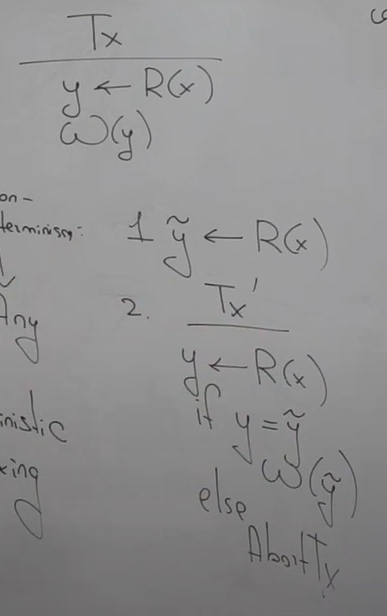 Tx
y ← R(x)
W(y)
on-
terminism:
Any
inistic
xing
1 ỹ ← R(x)
2. Tx'
y ← R(x)
if y = ỹ
W(ỹ)
else
Abort Tx